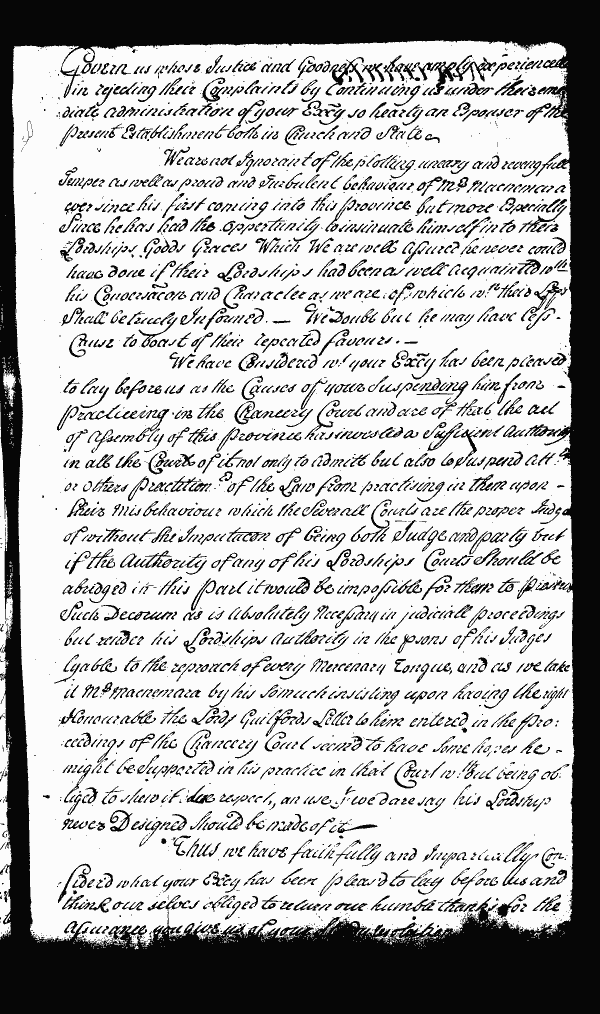 Govern us whose Justice and Goodness we have amply experienced
in rejecting their Complaints by Continuing us under the imme
diate administration of your Excy so hearty an Espouser of the
Present Establishment both in Church and State
We are not Ignorant of the plotting uneasy and revengfull
Temper as well as proud and Turbulent behaviour of Mr. Macnemara
ever since his first coming into this Province but more Especially
Since he has had the opportunity to insinuate himself into their
Lordships Godds Graces Which We are well Assured he never could
have done if their Lordships had been as well acquainted wth
his Conversacon and Character as we are, of which wn their Lpps
Shall be truely Informed. — We Doubt but he may have less -
Cause to boast of their repeated favours. —
We have Considered wt your Excy has been pleased
to lay before us as the Causes of your Suspending him from -
Practiceing in the Chancery Court and are of that the act
of Assembly of this Province has invested a Suffisient Authority
in all the Courts of it not only to admitt but also to Suspend Att
or Others Practition.rs of the Law from practising in them upon -
their misbehaviour which the Severall Courts are the proper Judges
of without the Imputacon of being both Judge and party but
if the Authority of any of his Lordships Courts Should be
abridged in this Part it would be impossible for them to
Such Decorum as is Absolutely Necessary in judiciall proceedings
but render his Lordships Authority in the psons of his Judges
lyable to the reproach of every Mercenary Tongue, and as we take
it Mr. Macnemara by his so much insisting upon having the right
Honourable the Lord Guilfords Letter to him entered in the Pro:
ceedings of the Chancery Court seemd to have some hopes he -
might be Supported in his practice in that Court wth.out being ob
liged to shew it due respect, an use yt we dare say his Lordship
never Designed should be made of it
Thus we have faithfully and Impartially Con:
siderd what your Excy has been pleasd to lay before us and
think our selves obliged to return our humble thanks for the
Assurance you give us of your